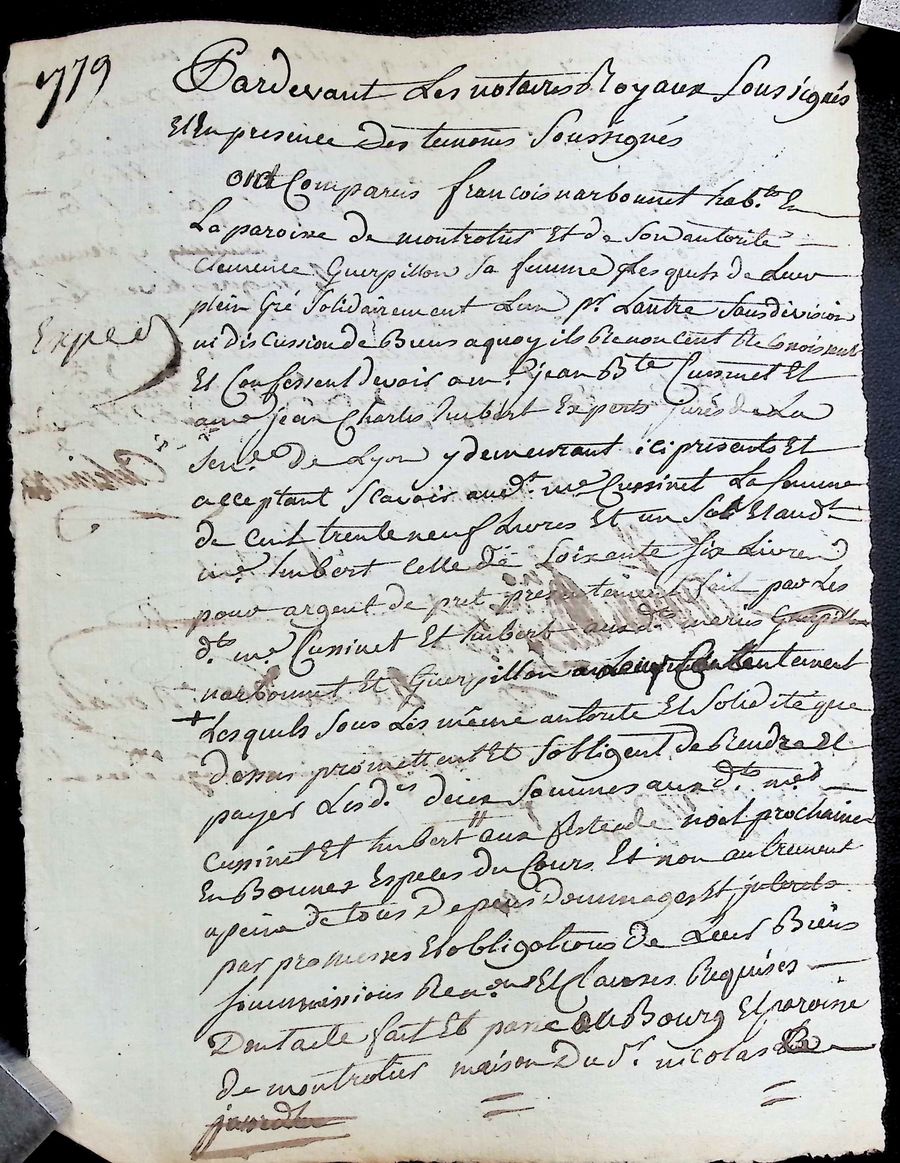 779
Pardevant Les notaires Royaux Soussignés
Et En presence Des temoins Soussignés
ont Comparus françois narbonnet hab.ts En
La paroisse de montrotier Et de Son autorité
Clemence Guerpillon Sa femme Lesquels de Leur
plein gré Solidairement Lun pr. Lautre Sans division
ni discussion de Biens a quoy ils Renoncent Reconoissent
Exped
Et Confessent devoir a mr. jean Bte Cussinet Et
a me jean Charles hubert Experts jurés de La
Sen.ée De Lyon y demeurant ici presents Et
acceptant Scavoir aud.t me Cussinet La somme
de Cent trente neuf Livres Et un Sol Et aud.t
me hubert Celle de Soixante Six Livres
pour argent de pret presentement fait par Les
d.ts me Cussinet Et hubert aux d.ts mariés
narbonnet Et Guerpillon a Leur Contentement
+ Lesquels Sous Les même autorité Et Solidité que
dessus promettent Et Sobligent de Rendre Et
payer Les d.es deux Sommes aux d.ts mes
Cussinet Et hubert aux feste de noel prochaine
En Bonnes Especes du Cours Et non autrement
a peine de tous Depens Dommages Et
par promesses Et obligations de Leur Biens
Soummissions Ren.ons Et Clauses Requises
Dont acte fait Et passé au Bourg Et paroisse
de montrotier maison Du Sr. nicolas